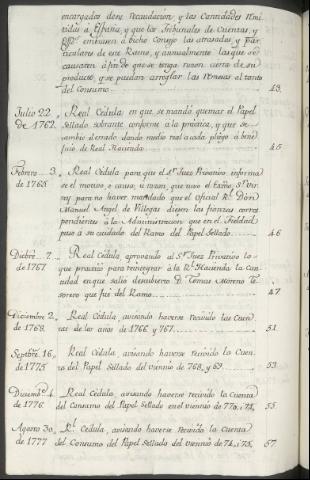 encargados de su recaudacion, y las Cantidades remi-
tidas á España, y que los Tribunales de Cuentas, y
embiasen á dicho Consejo las atrasadas y par-
ticulares de este Ramo, y anualmente las que se
causaren á fin de que se tenga razon cierta de su
producto, y se puedan arreglar las remesas al tanto
del Consumo 43.
Julio 22 de 1762. Real Cedula en que se mandó quemar el Papel
Sellado sobrante conforme á la practica, y que se
cambie el errado dando medio real a cada pliego á bene-
ficio de Real Hacienda 45
Febrero 3 de 1765 Real Cedula para que el Sr. Juez Privativo informa-
se el motivo, o causa, ú razon, que tuvo el Exmo. Sr. Vir-
rey para no haver mandado que el oficial Rl. Don
Manuel Angel de Villegas diesen las fianzas corres
pondientes á la Administracion que en el Fieldad
puso á su cuidado del Ramo del Papel Sellado 46
Dicbre. 7 de 1767 Real Cedula, aprovando al Sr. Juez Privativo lo
que practicó para reintegrar á la Rl. Hacienda la Can-
tidad en que salio descubierto D. Tomas Moreno te-
sorero que fue del Ramo 47
Diciembre 2 de 1768. Real Cedula, avisando haverse recivido las Cuen-
tas de los años de 1766 y 767 51
Septbre. 16 de 1775 Real Cedula, avisando haverse recivido la Cuen-
ta del Papel Sellado del viennio de 768, y 69 53
Diciembre. 4 de 1776 Real Cedula, avisando haverse recivido la Cuenta
del Consumo del Papel Sellado en el viennio de 770, i 71, 55
Agosto 30 de 1777 Rl. Cedula, avisando haverse recivido la Cuenta
del Consumo del Papel Sellado del viennio de 74, i 75, 57